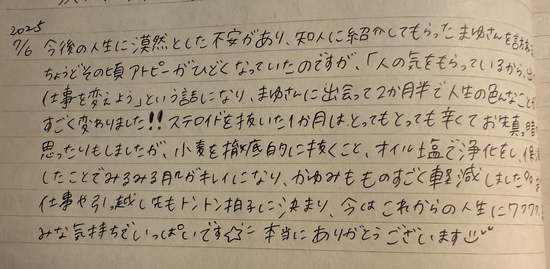 2025
7/6 今後の人生に漠然とした不安があり、知人に紹介してもらったまゆさんを訪
ちょうどその頃アトピーがひどくなっていたのですが、「人の気をもらっているから、
仕事を変えよう」という話になり、まゆさんに出会って2か月半で人生の色んなことが
すごく変わりました!! ステロイドを抜いた1か月は、とってもとっても辛くてお先真っ暗
思ったりもしましたが、小麦を徹底的に抜くこと、オイル塩で浄化をし、保
したことでみるみる肌がキレイになり、かゆみもものすごく軽減しました
仕事や引っ越し先もトントン拍子に決まり、今はこれからの人生にワクワク
みな気持ちでいっぱいです☆ 本当にありがとうございます